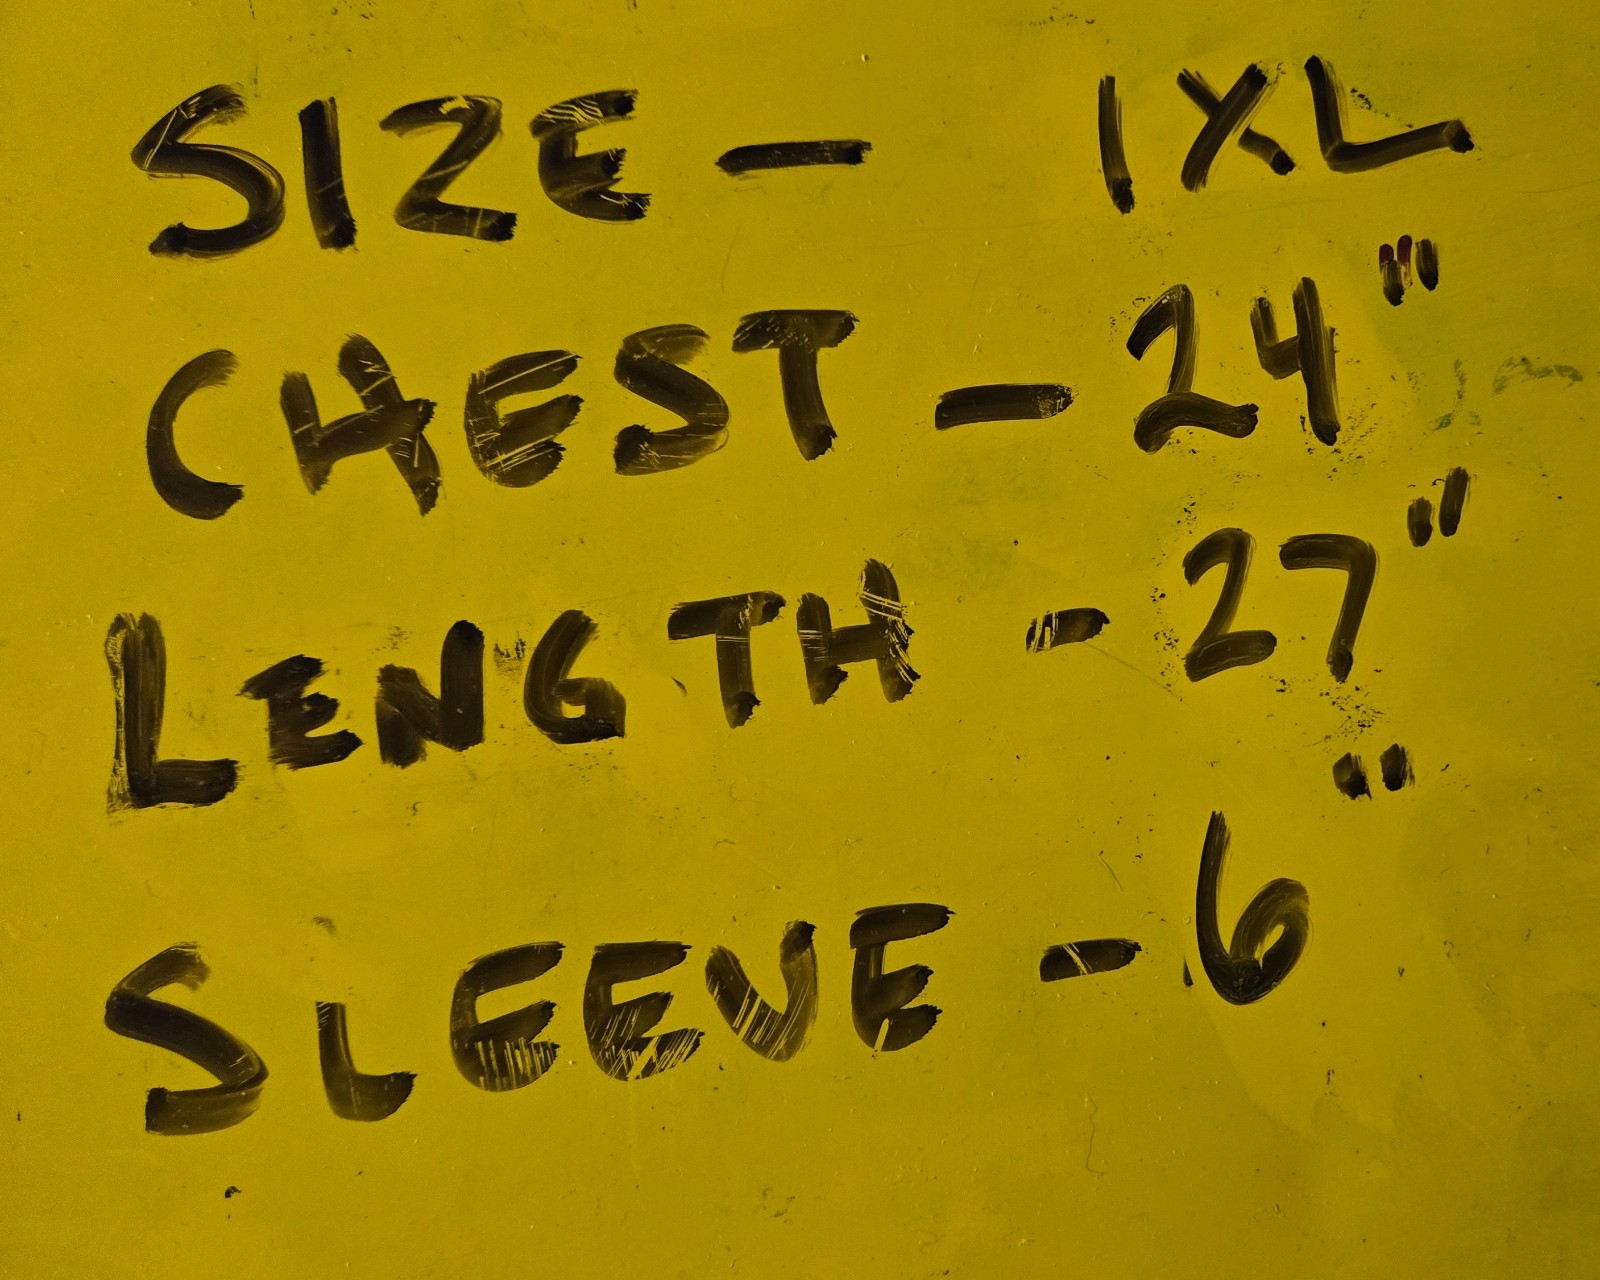 SIZE - 1XL
CHEST - 24"
LENGTH - 27"
SLEEVE - 6"